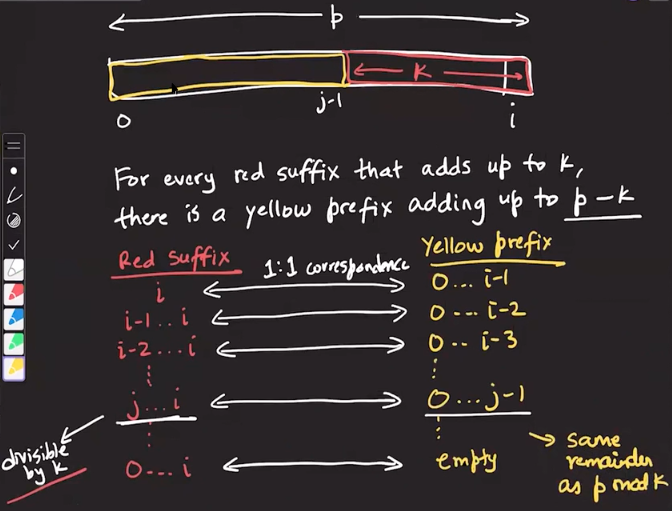 p
K
j-1
0
i
For every red suffix that adds up to K,
there is a yellow prefix adding up to p-K
Red suffix
1:1 correspondence
Yellow prefix
i
0...i-1
i-1..i
0...i-2
i-2...i
0..i-3
j...i
0...j-1
divisible
by K
0...i
empty
same
remainder
as p mod K